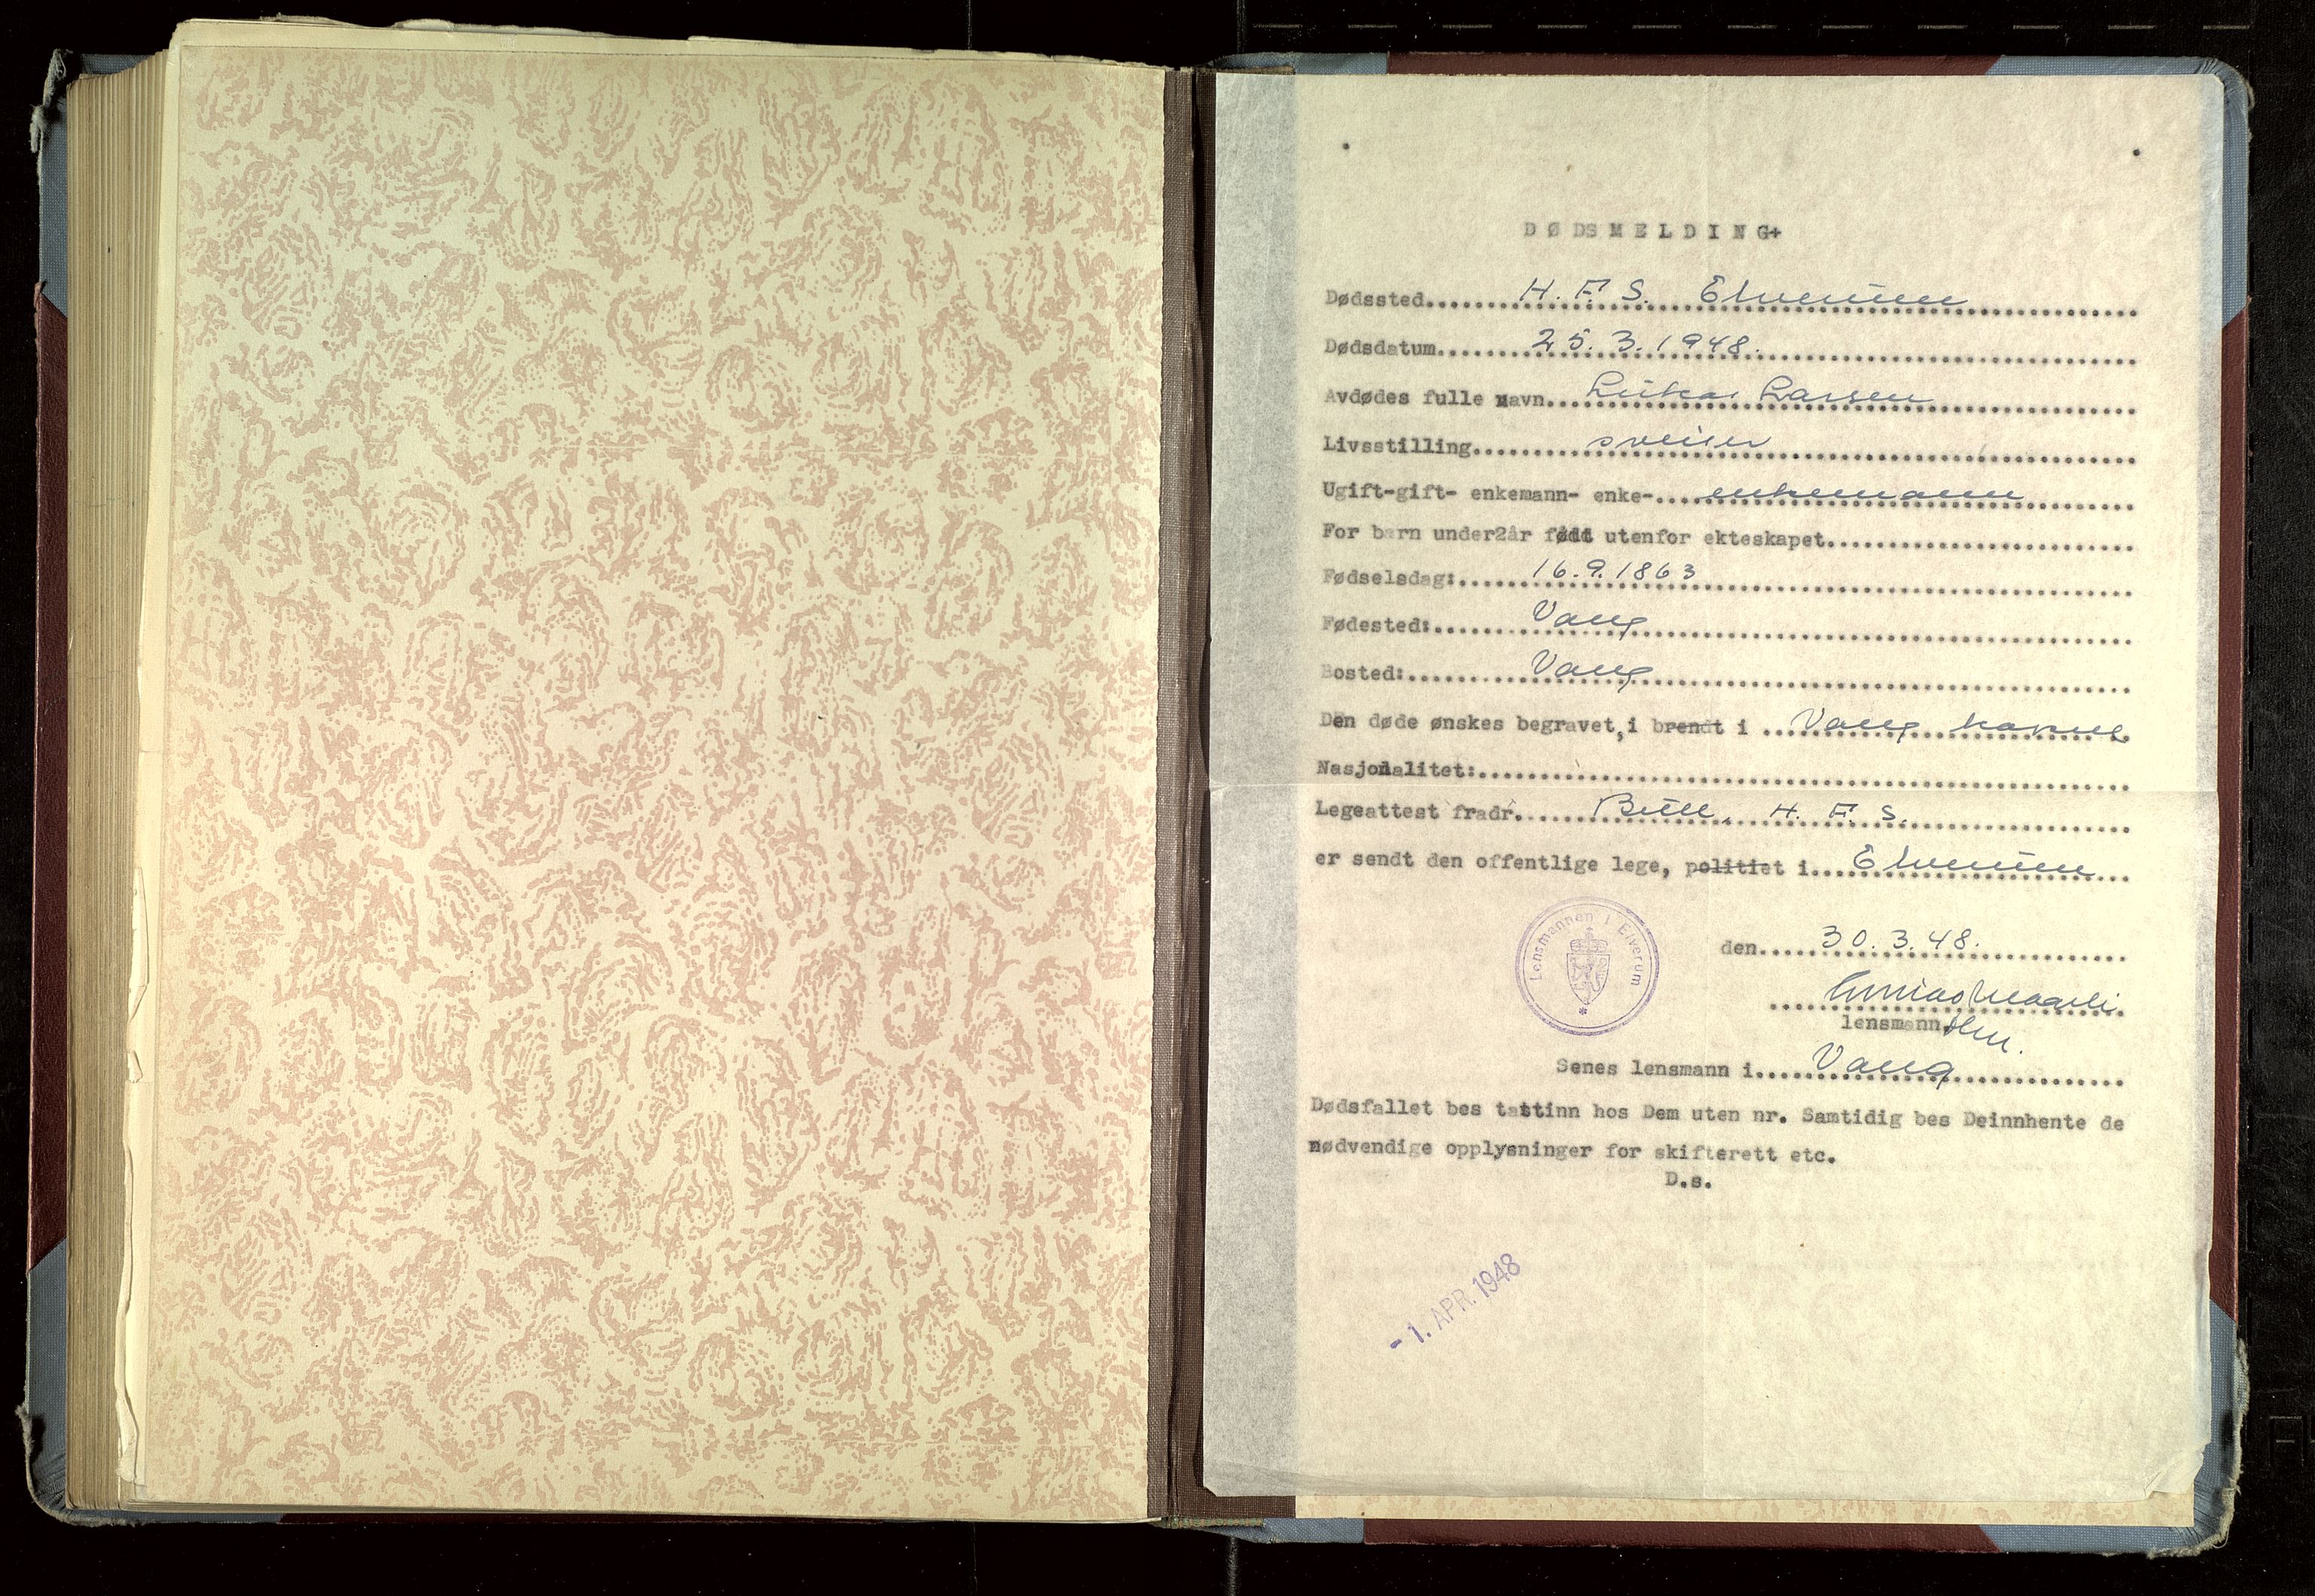 DØDSMELDING+
Dødssted.....H. F. S. Elverum
Dødsdatum.....25.3.1948.
Avdødes fulle navn...Lukas Larsen
Livsstilling.....sveiser
Ugift-gift- enkemann- enke-....enkemann
For barn under2år født utenfor ekteskapet.....
Fødselsdag:.....16.9.1863
Fødested:.....Vang
Bosted:.....Vang
Den døde ønskes begravet,i brendt i ...Vang
Nasjonalitet:.....
Legeattest fradr.....Bull, H. F. S.
er sendt den offentlige lege, politiet i...Elverum
Lensmannen i Elverum
den.....30.3.48.
lensmann
Senes lensmann i.....Vang
Dødsfallet bes tattinn hos Dem uten nr. Samtidig bes Deinnhente de
nødvendige opplysninger for skifterett etc.
D.s.
- 1. APR. 1948